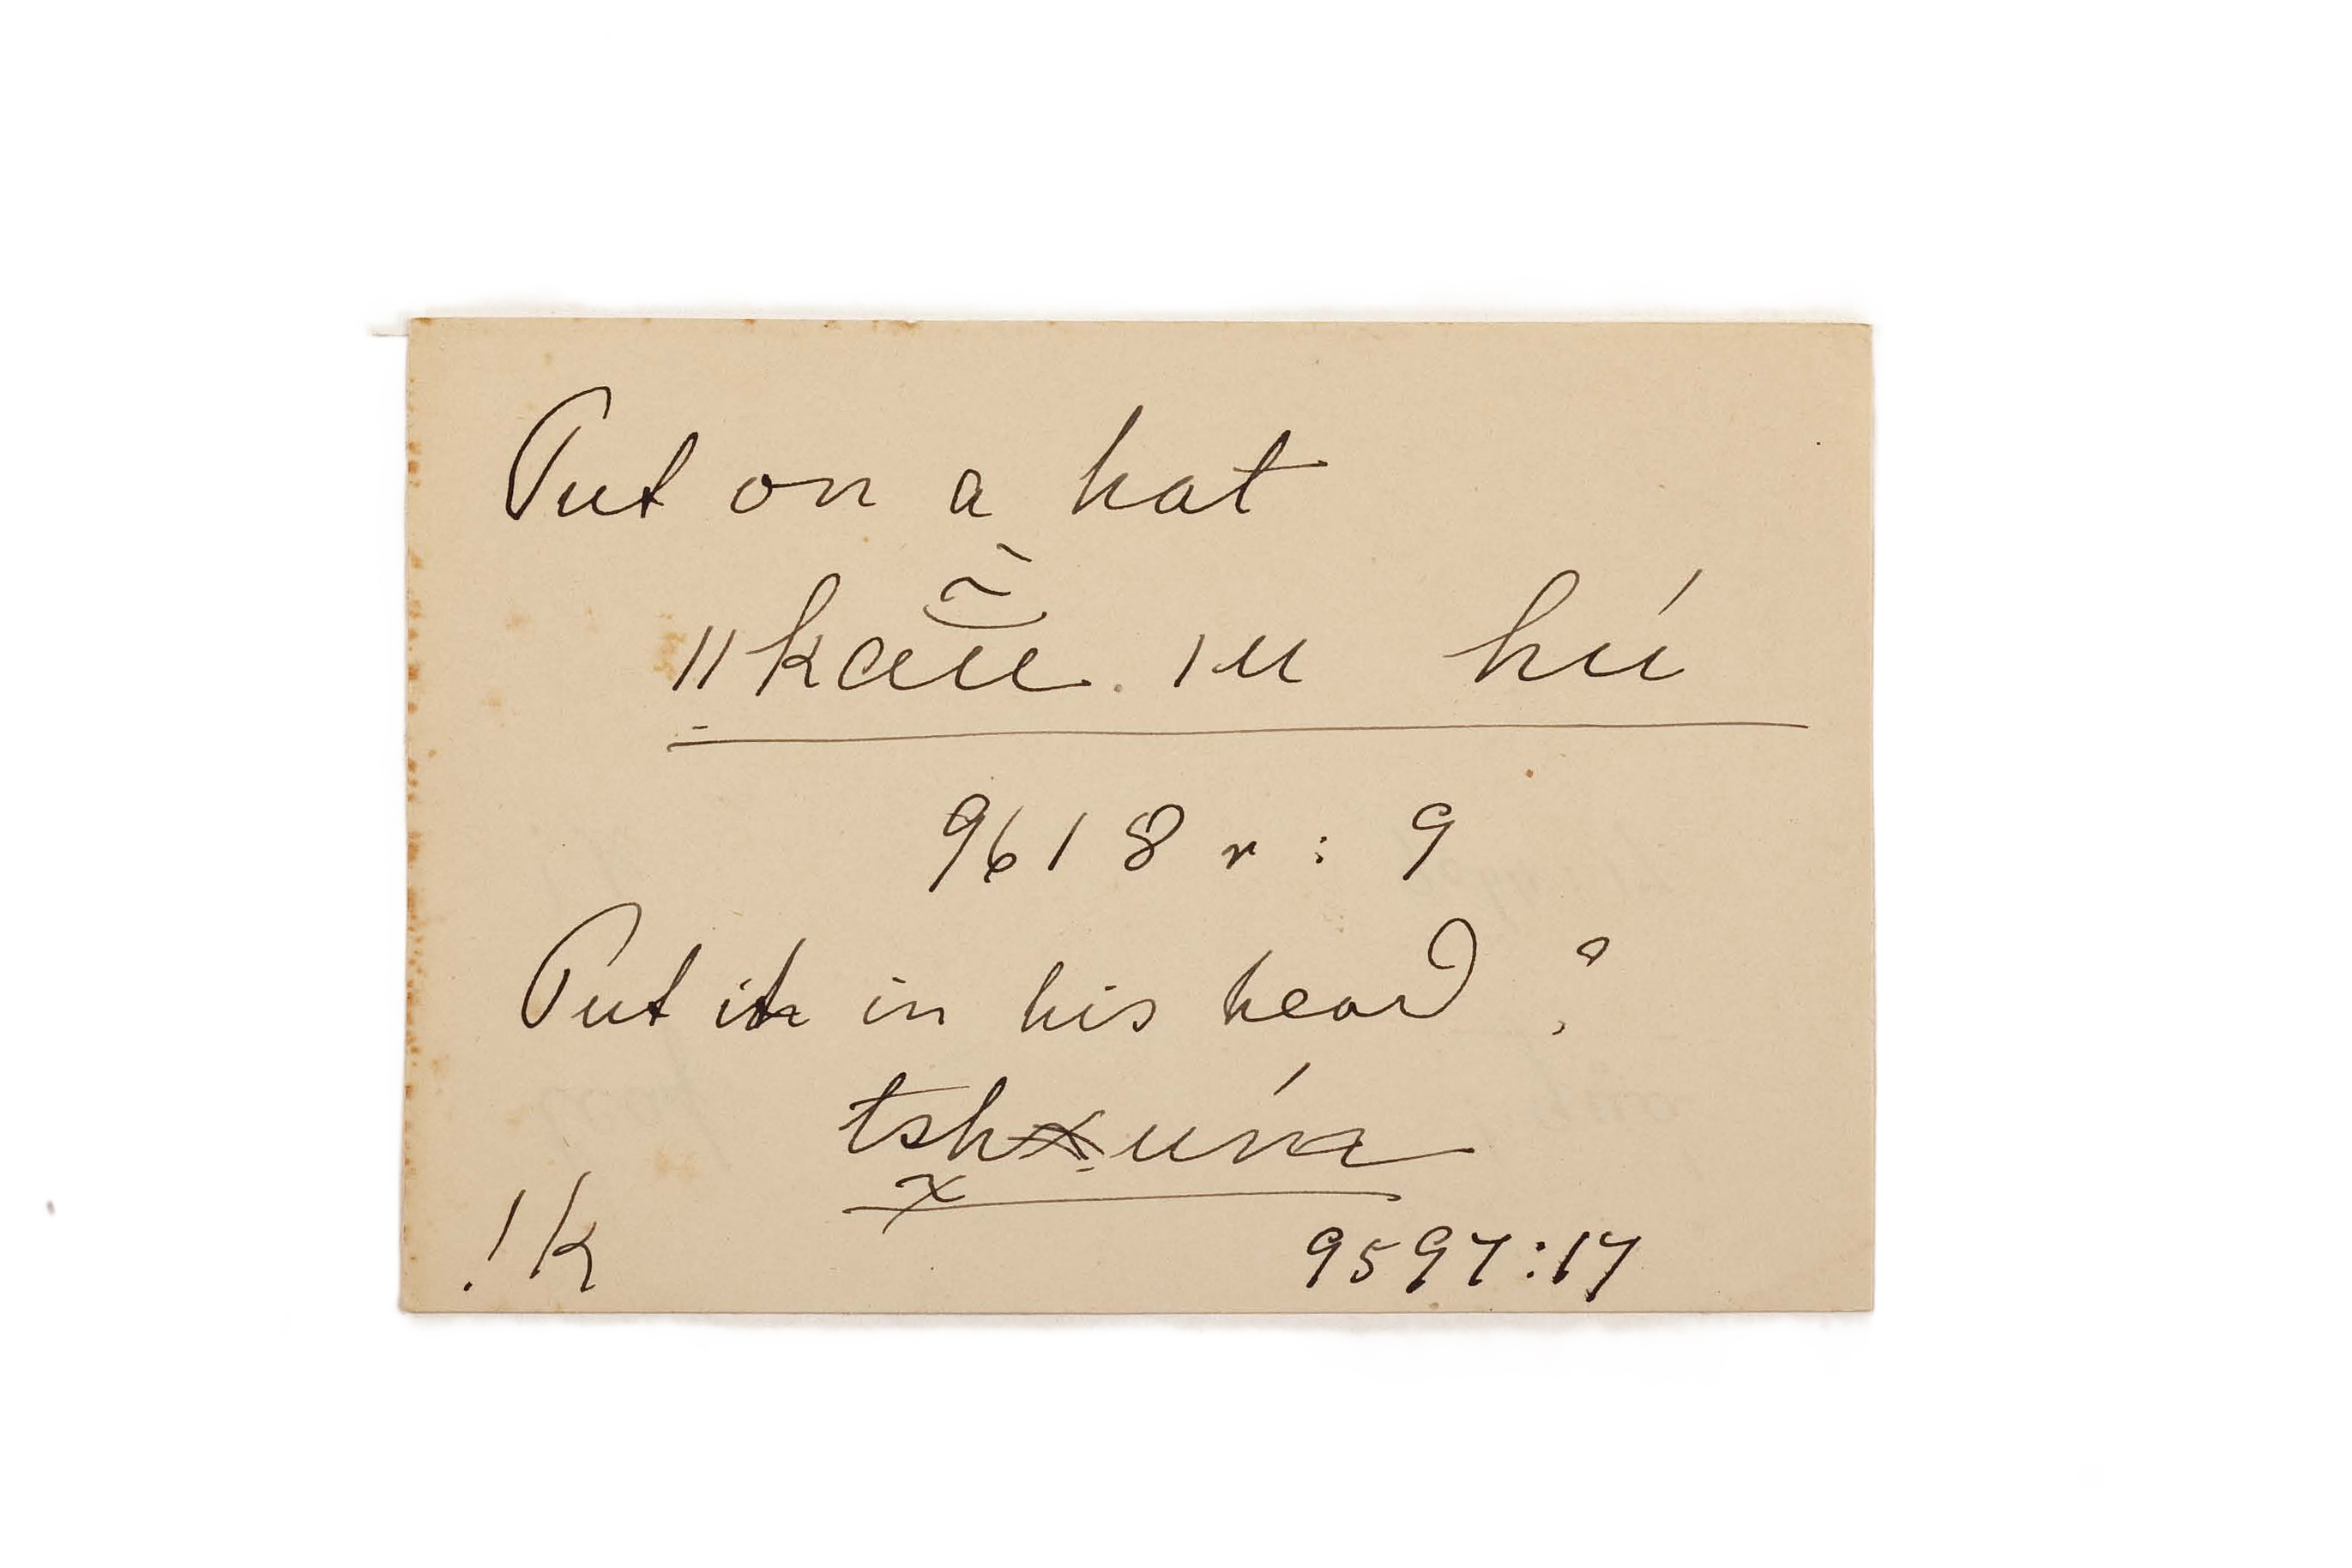 Put on a hat
ǁkau͠. ǀu hú
9618 r : 9
Put it in his head ?
tshúna
!k 9597:17